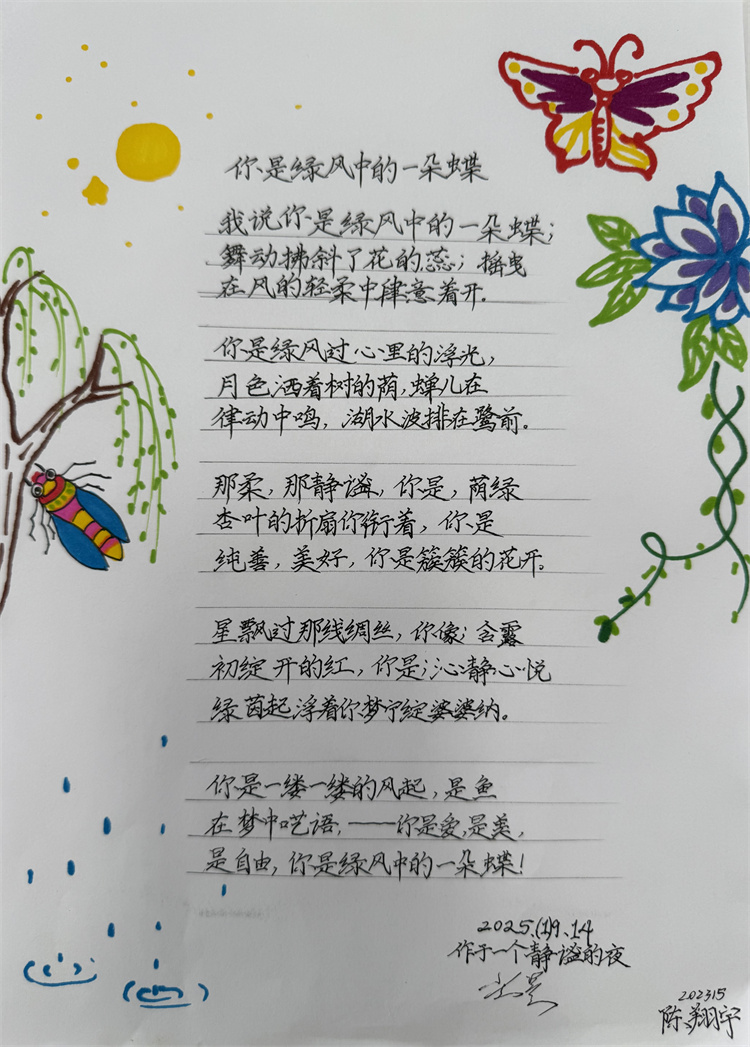 你是绿风中的一朵蝶
我说你是绿风中的一朵蝶；
舞动拂斜了花的蕊；摇曳
在风的轻柔中肆意着开.
你是绿风过心里的浮光，
月色洒着树的荫，蝉儿在
律动中鸣，湖水波排在鹭前。
那柔，那静谧，你是，荫绿
杏叶的折扇你衔着，你是
纯善，美好，你是簇簇的花开。
星飘过那线绸丝，你像；含露
初绽开的红，你是；沁静心悦
绿茵起浮着你梦宁绽婆婆纳。
你是一缕一缕的风起，是鱼
在梦中呓语，——你是爱，是美，
是自由，你是绿风中的一朵蝶！
2025.(1)9.14
作于一个静谧的夜
202315
陈翔宇